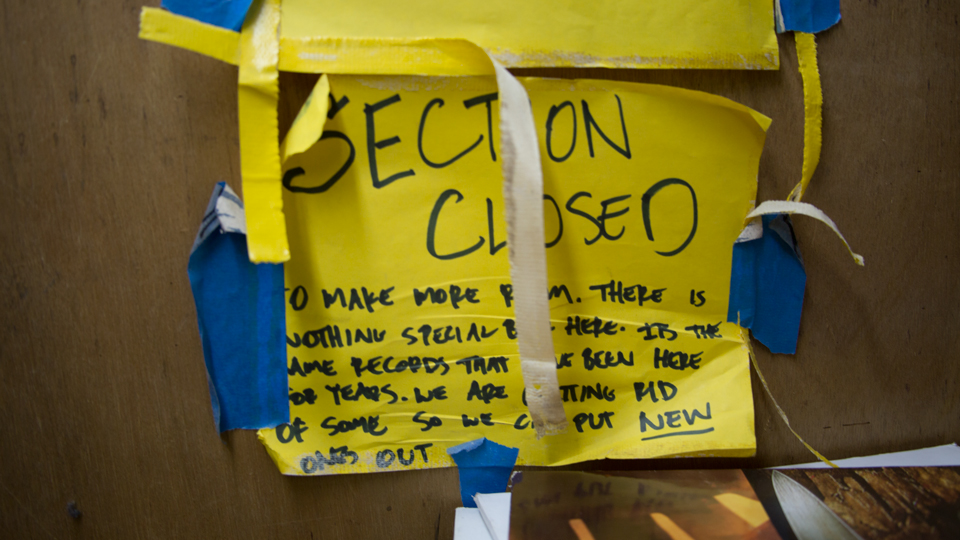 SECTION
CLOSED
TO MAKE MORE ROOM. THERE IS
NOTHING SPECIAL BACK HERE. ITS THE
SAME RECORDS THAT HAVE BEEN HERE
FOR YEARS. WE ARE GETTING RID
OF SOME SO WE CAN PUT NEW
ONES OUT